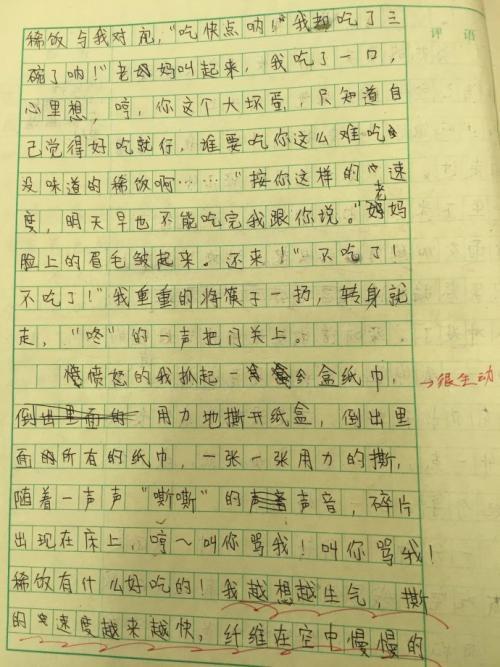 评语
稀饭与我对视,“吃快点呐!”我都吃了三
碗了呐!”老妈妈叫起来,我吃了一口,
心里想,哼,你这个大坏蛋,只知道自
己觉得好吃就行,谁要吃你这么难吃
没味道的稀饭啊……“按你这样的速
度,明天早也不能吃完我跟你说。”老妈妈
脸上的眉毛皱起来。还来!“不吃了!
不吃了!”我重重的将筷子一扔,转身就
走,“咚”的一声把门关上。
愤怒的我抓起一盒纸巾,
→很生动
倒出里面的用力地撕开纸盒,倒出里
面的所有的纸巾,一张一张用力的撕,
随着一声声“嘶嘶”的声音,碎片
出现在床上,哼~叫你骂我!叫你骂我!
稀饭有什么好吃的!我越想越生气,撕
的速度越来越快,纤维在空中慢慢的